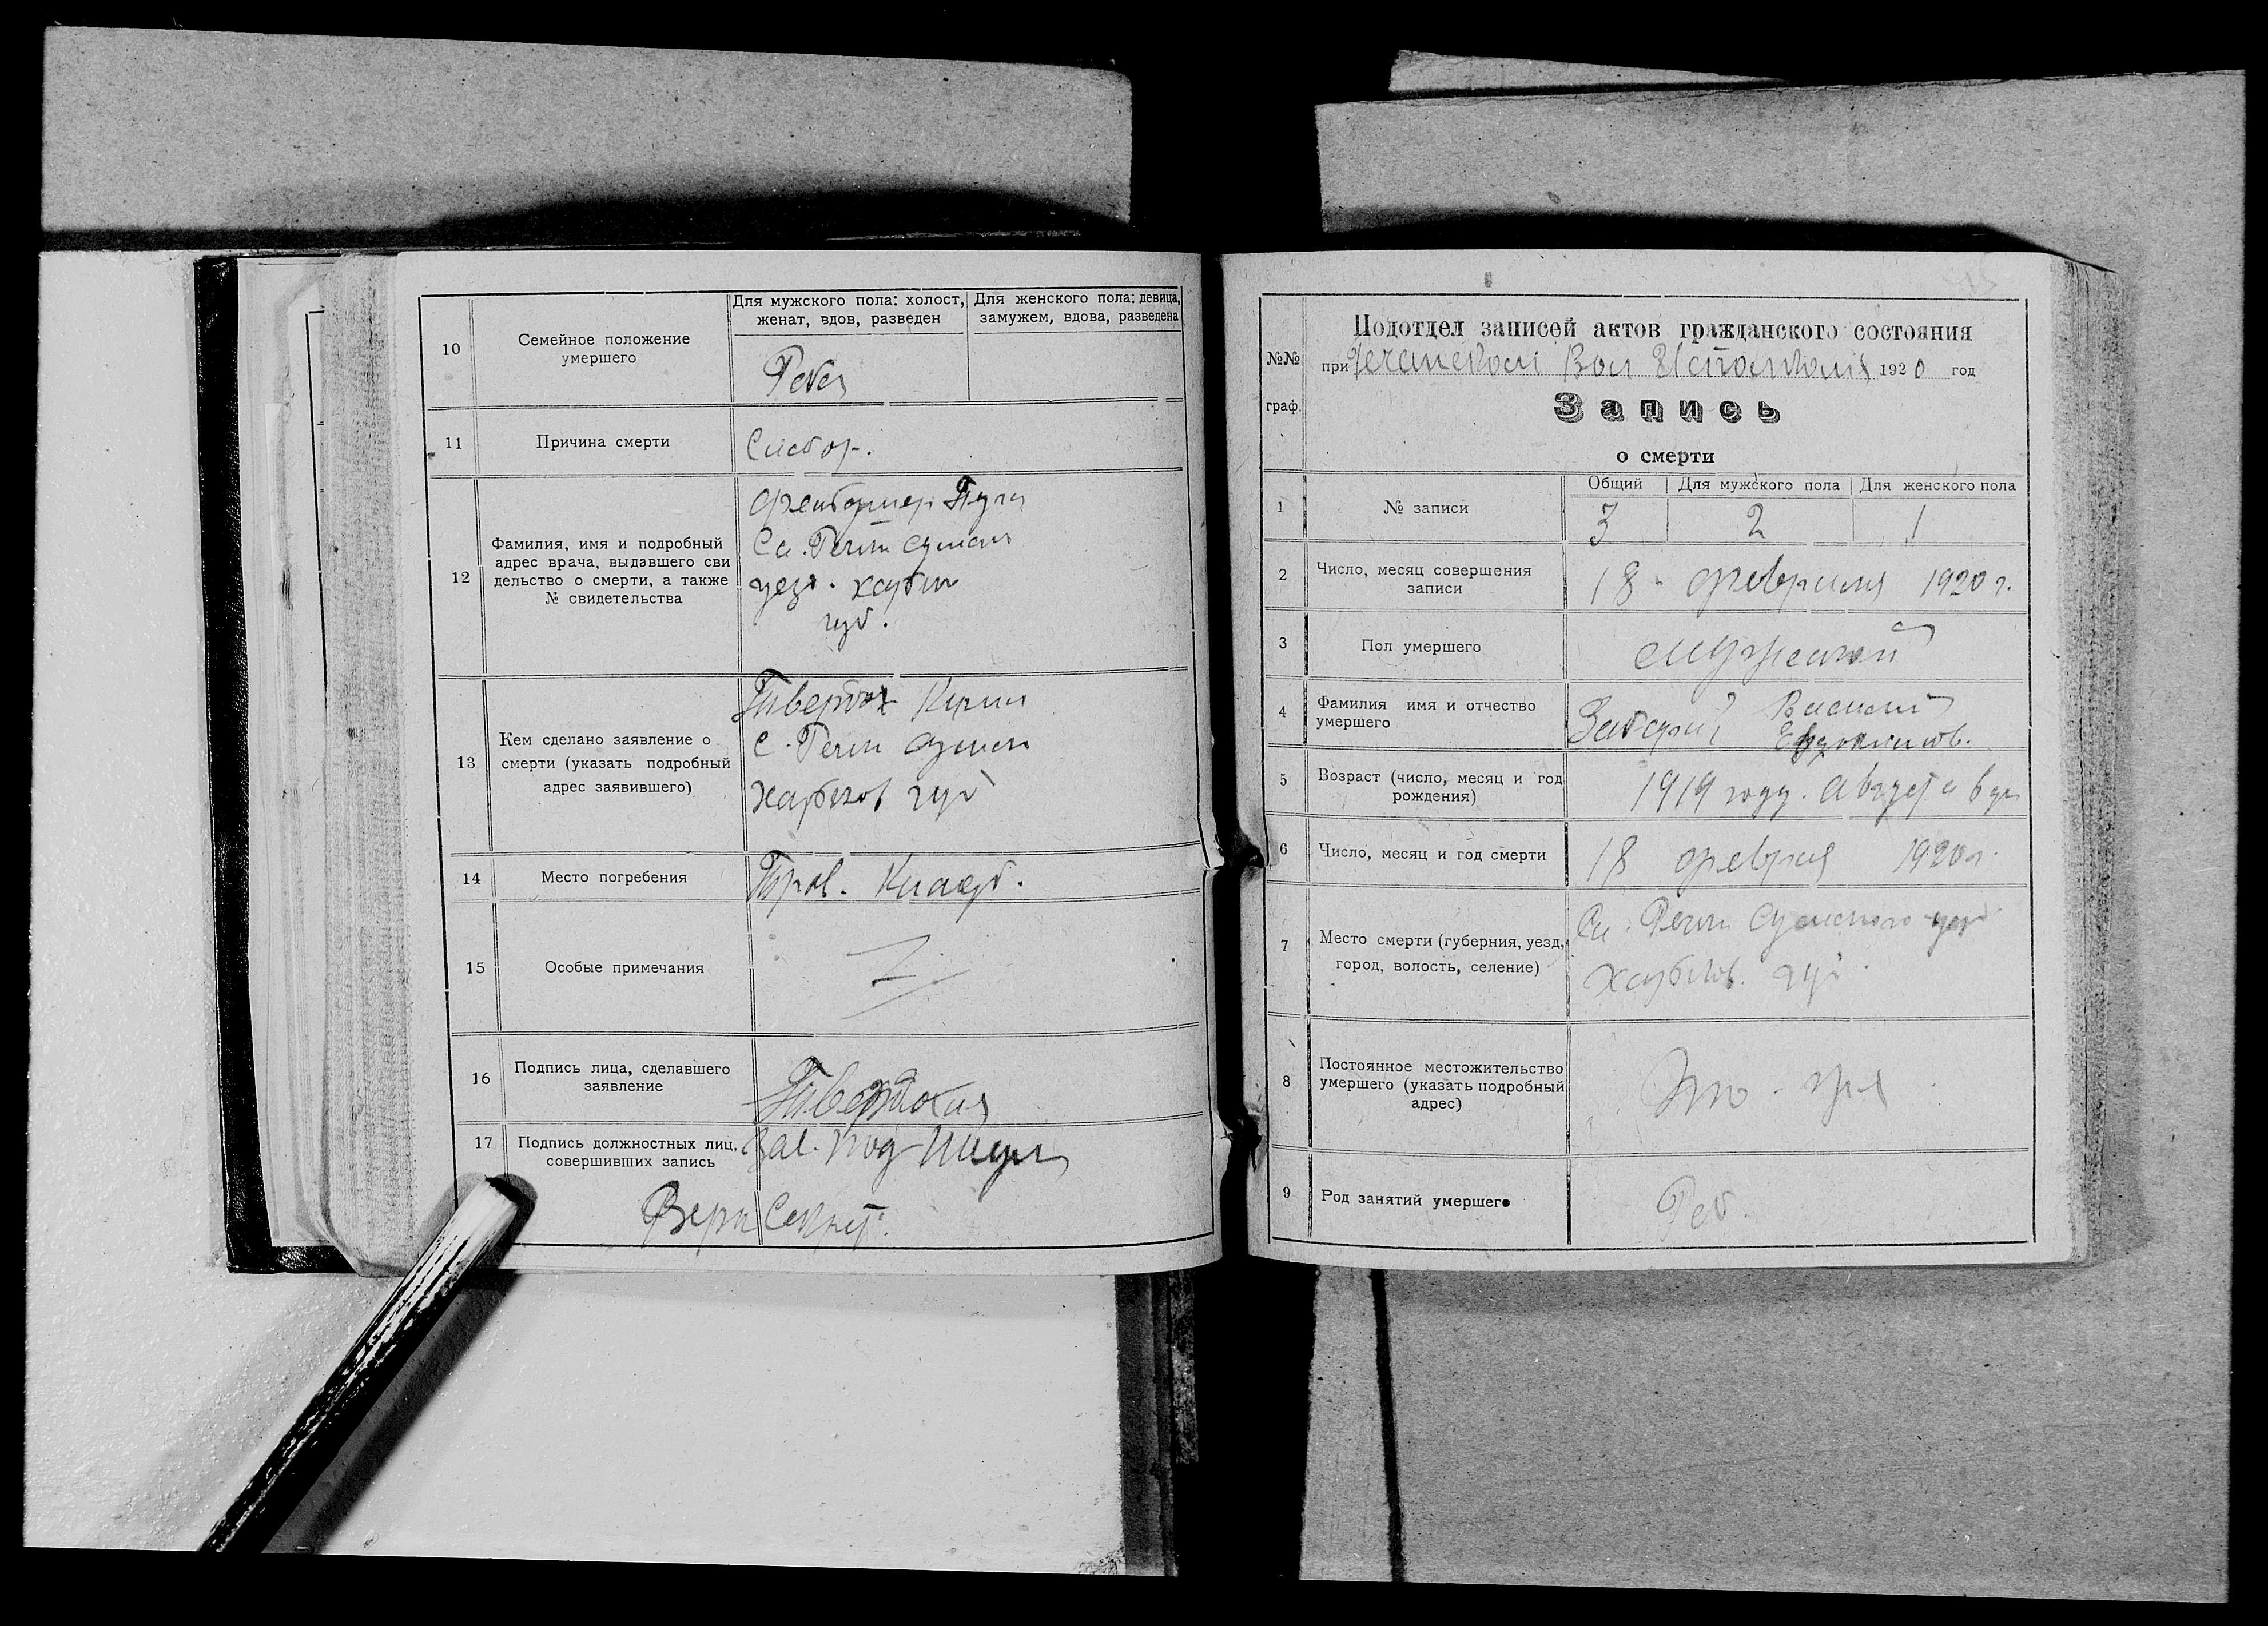 10
Семейное положение
умершего
Для мужского пола: холост,
женат, вдов, разведен
Для женского пола: девица,
замужем, вдова, разведена
11
Причина смерти
12
Фамилия, имя и подробный
адрес врача, выдавшего сви
дельство о смерти, а также
№ свидетельства
губ.
13
Кем сделано заявление о
смерти (указать подробный
адрес заявившего)
Харьков губ
14
Место погребения
Кладб.
15
Особые примечания
16
Подпись лица, сделавшего
заявление
17
Подпись должностных лиц,
совершивших запись
Зав. Под
Секрет.
Подотдел записей актов гражданского состояния
№№
граф.
при Вол 1920 год
Запись
о смерти
Общий
Для мужского пола
Для женского пола
1
№ записи
3
2
1
2
Число, месяц совершения
записи
18 февраля 1920 г.
3
Пол умершего
мужской
4
Фамилия имя и отчество
умершего
Василий
Евдокимов.
5
Возраст (число, месяц и год
рождения)
1919 году. Августа
6
Число, месяц и год смерти
18 феврля 1920 г.
7
Место смерти (губерния, уезд,
город, волость, селение)
Сл. Речки Сумского уезд
Харьков. губ.
8
Постоянное местожительство
умершего (указать подробный
адрес)
9
Род занятий умершего
Реб.